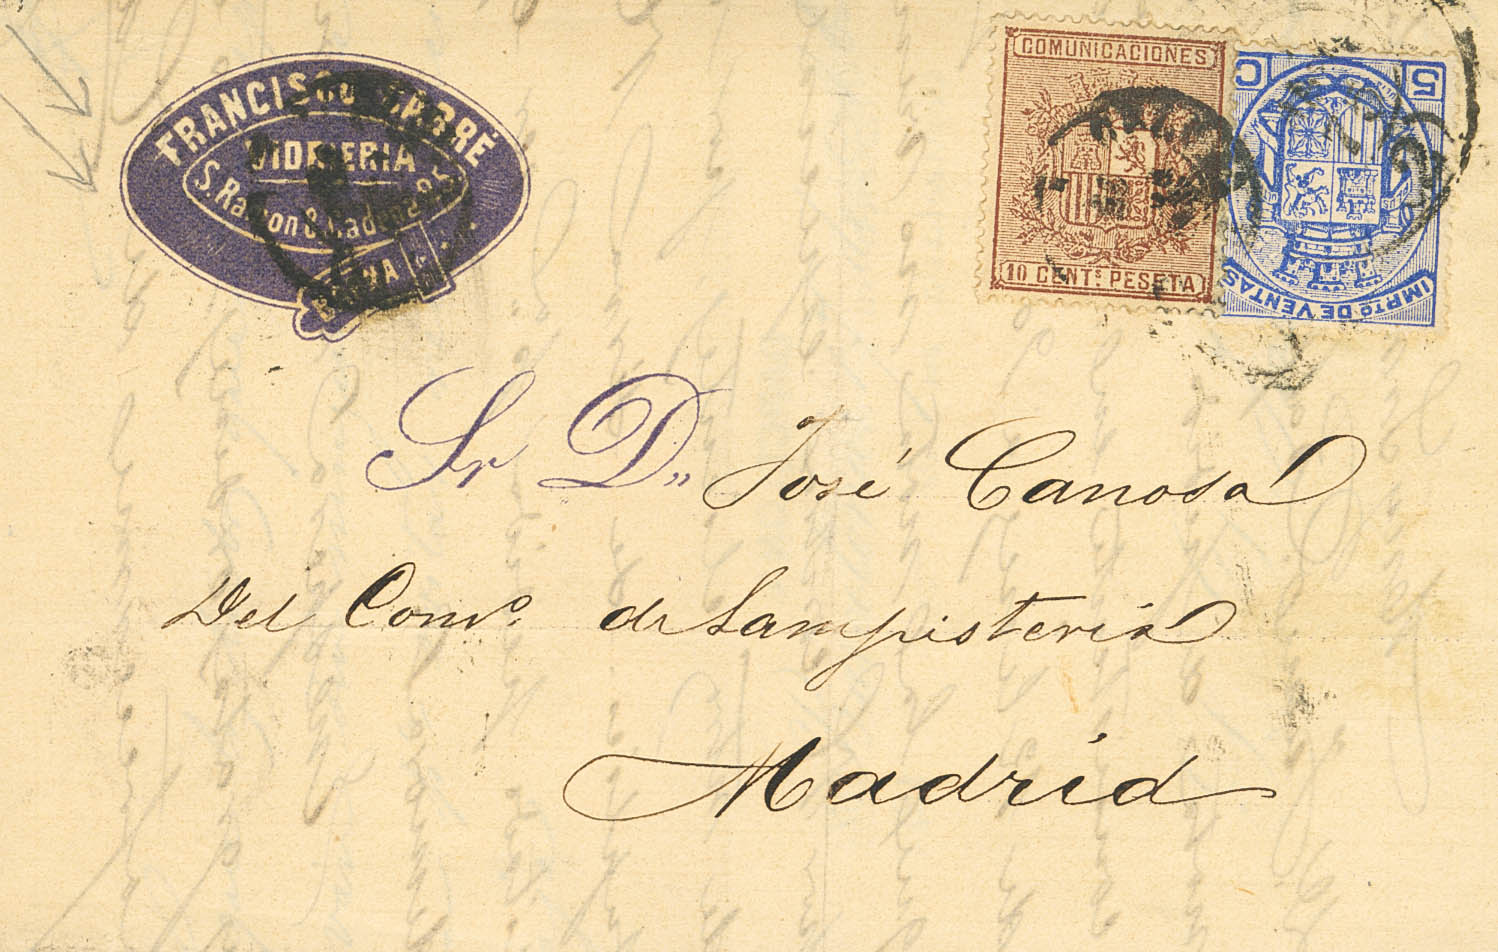 FRANCISCO FARRÉ
VIDRIERIA
S. Ramon
BARNA
COMUNICACIONES
10 CENT.ˢ PESETA
5 C
IMP.ᵗᵒ DE VENTAS
Sr D.ⁿ José Canosa
Del Com.º de Lampisteria
Madrid